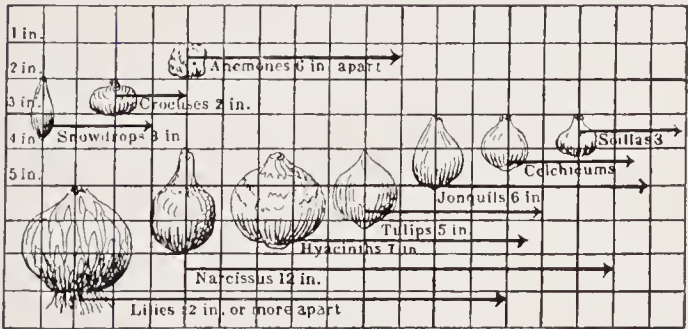 1 in.
Anemones 6 in. apart
2 in.
Crocuses 2 in.
3 in.
Snowdrops 3 in
Scillas 3
4 in.
Colchicums
5 in.
Jonquils 6 in
Tulips 5 in.
Hyacinths 7 in
Narcissus 12 in.
Lilies 12 in. or more apart